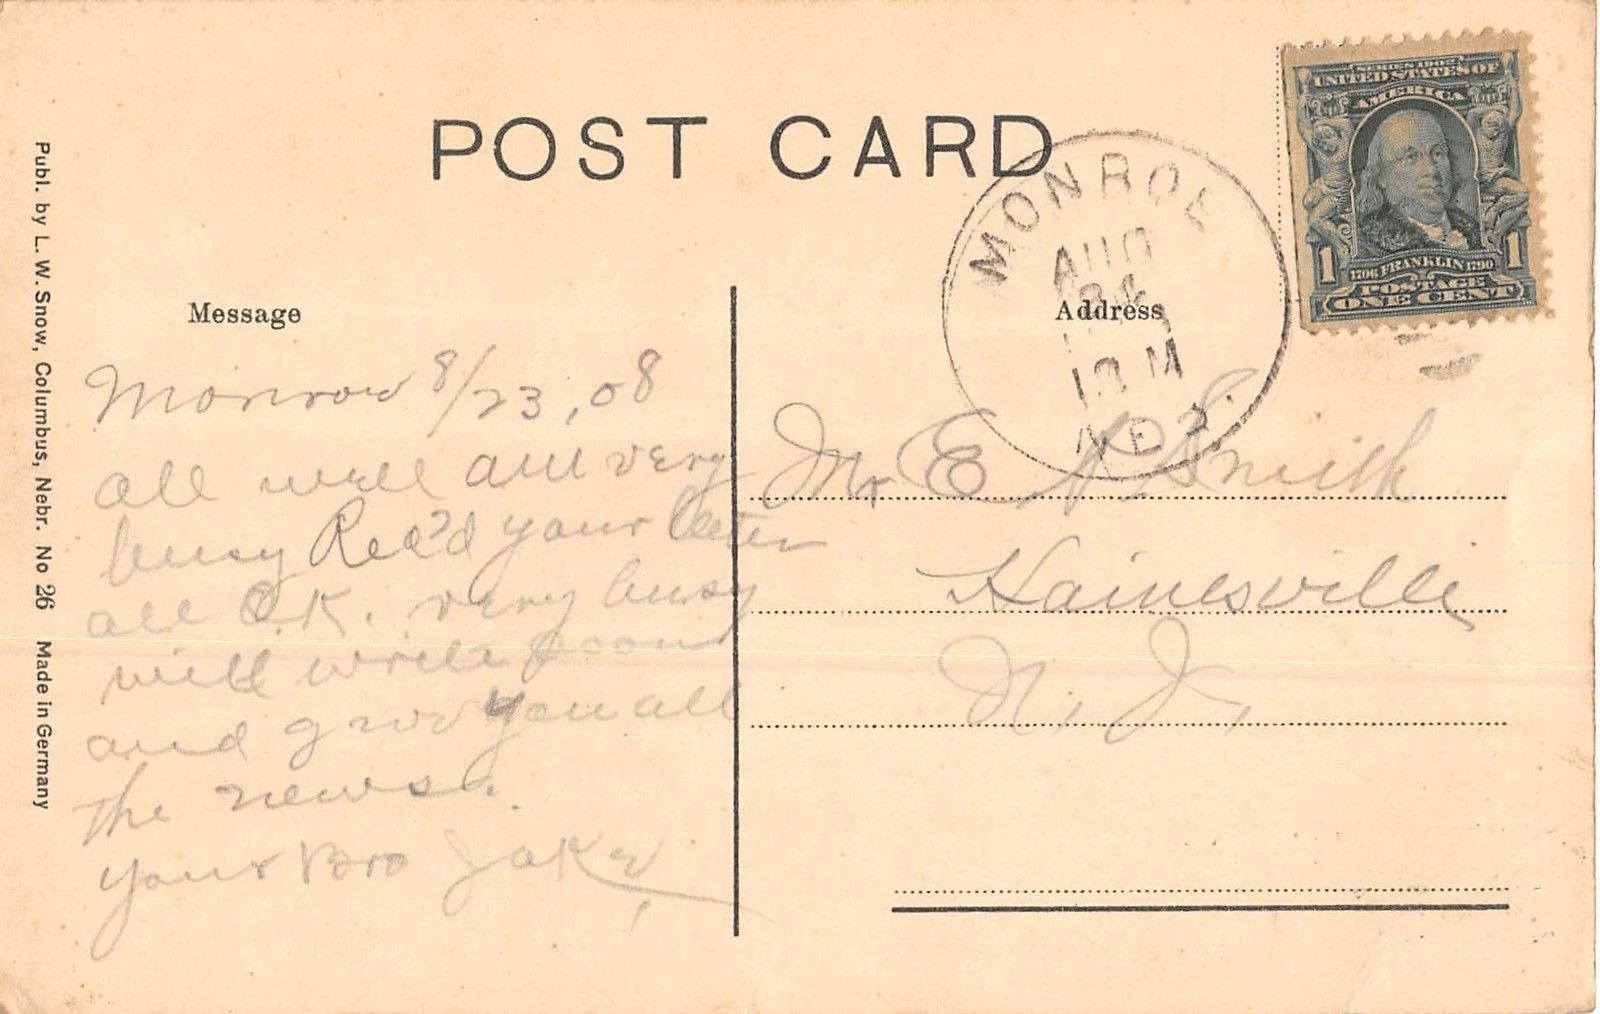 POST CARD
Publ. by L. W. Snow, Columbus, Nebr. No 26 Made in Germany
MONROE
AUG
24
NEB.
SERIES 1902
UNITED STATES OF
AMERICA
1 1
1706 FRANKLIN 1790
POSTAGE
ONE CENT
Message
Monroe 8/23, 08
all well am very
busy Rec'd your letter
all O.K. very busy
will write soon
and give you all
the news.
your Bro Jake,
Address
Mr E Smith
Hainesville
N. J.